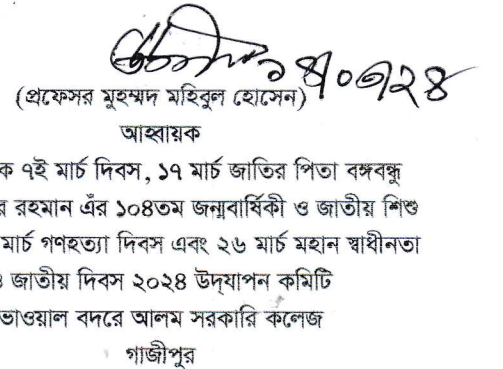 (প্রফেসর মুহম্মদ মহিবুল হোসেন)
আহ্বায়ক
ক ৭ই মার্চ দিবস, ১৭ মার্চ জাতির পিতা বঙ্গবন্ধু
র রহমান এঁর ১০৪তম জন্মবার্ষিকী ও জাতীয় শিশু
মার্চ গণহত্যা দিবস এবং ২৬ মার্চ মহান স্বাধীনতা
ও জাতীয় দিবস ২০২৪ উদ্‌যাপন কমিটি
ভাওয়াল বদরে আলম সরকারি কলেজ
গাজীপুর